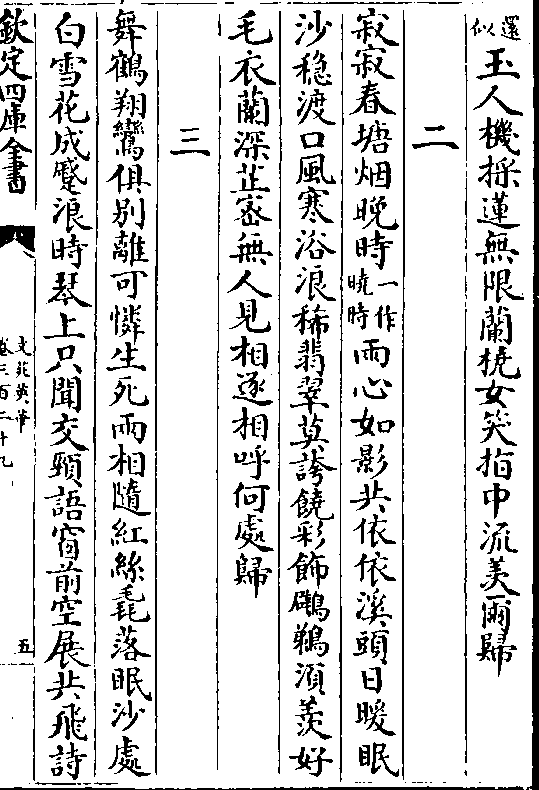 還似玉人機採蓮無限蘭橈女笑指中流羡爾歸
二
寂寂春塘烟晚時一作曉時兩心如影共依依溪頭日暖眠
沙穏渡口風寒浴浪稀翡翠莫誇饒彩飾鸊鵜湏羨好
毛衣蘭深芷宻無人見相逐相呼何處歸
三
舞鶴翔鸞俱别離可憐生死兩相隨紅絲毳落眠沙處
白雪花成蹙浪時琴上只聞交頸語窗前空展共飛詩
欽定四庫全書
文苑英華
卷三百二十九
五